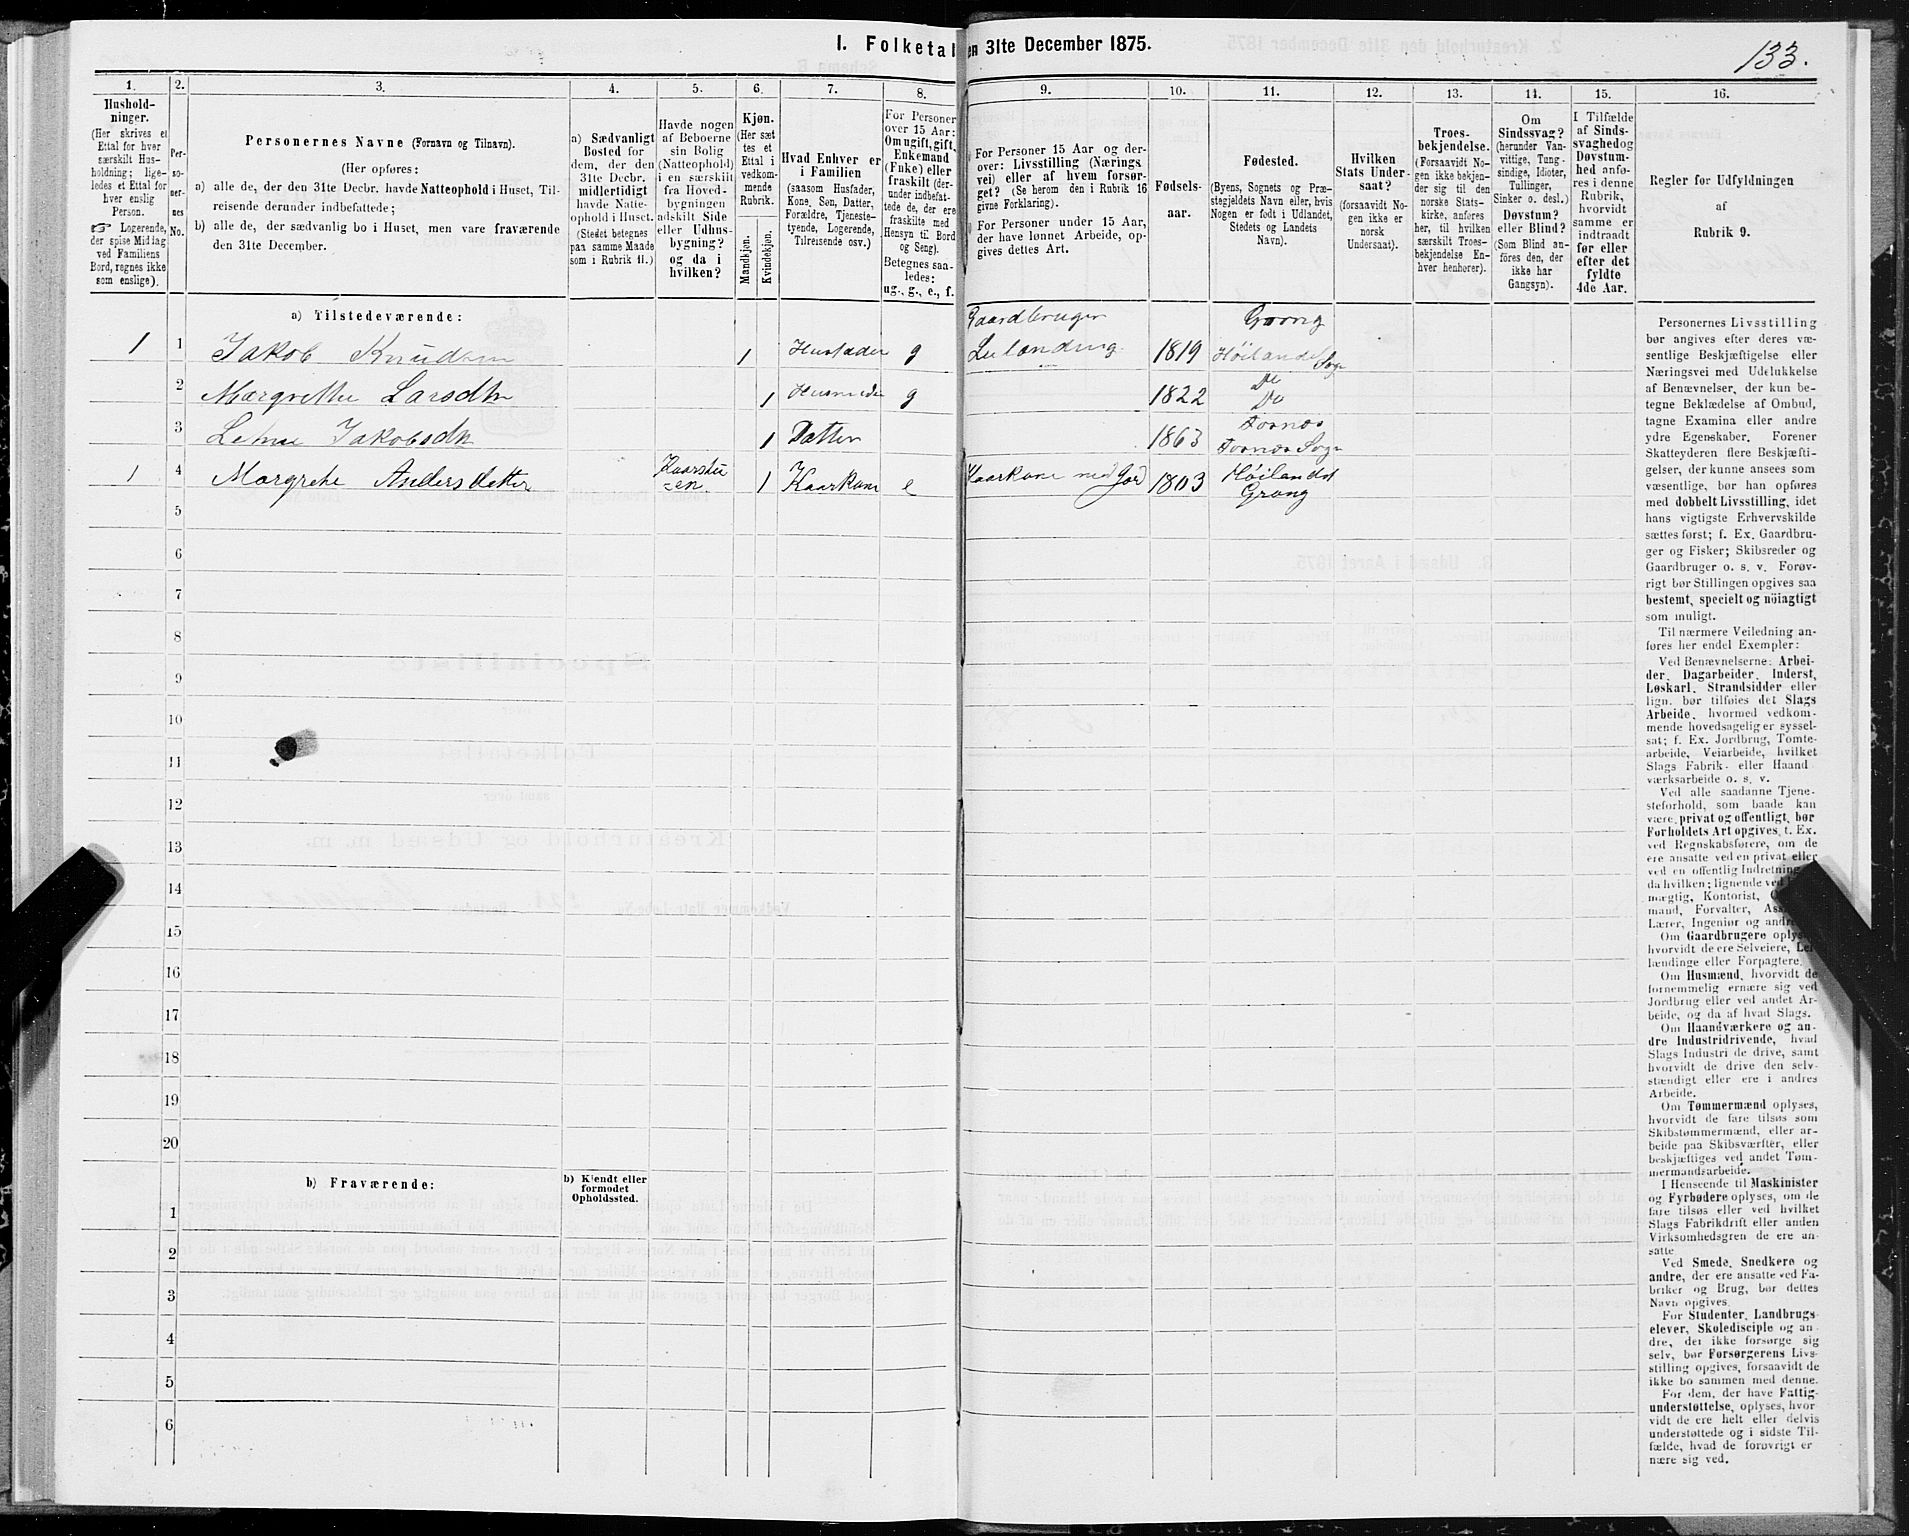 I. Folketal
en 31te December 1875.
133.
1. 2. 3. 4. 5. 6. 7. 8. 9. 10. 11. 12. 13. 14. 15. 16.
Hushold-
ninger.
(Her skrives et
Ettal for hver
særskilt Hus-
holding; lige-
ledes et Ettal for
hver enslig
Person.
Logerende,
der spise Middag
ved Familiens
Bord, regnes ikke
som enslige).
Per-
so-
ner-
nes
No.
Personernes Navne (Fornavn og Tilnavn).
(Her opføres:
a) alle de, der den 31te Decbr. havde Natteophold i Huset, Til-
reisende derunder indbefattede;
b) alle de, der sædvanlig bo i Huset, men vare fraværende
den 31te December.
a) Sædvanligt
Bosted for
dem, der den
31te Decbr.
midlertidigt
havde Natte-
ophold i Huset.
(Stedet betegnes
paa samme Maade
som i Rubrik 11.)
Havde nogen
af Beboerne
sin Bolig
(Natteophold)
i en særskilt
fra Hoved-
bygningen
adskilt Side
eller Udhus-
bygning?
og da i
hvilken?
Kjøn.
(Her sæt
tes et
Ettal i
vedkom-
mende
Rubrik.
Mandkjøn.
Kvindekjøn.
Hvad Enhver er
i Familien
(saasom Husfader,
Kone, Søn, Datter,
Forældre, Tjeneste-
tyende, Logerende,
Tilreisende osv.)
For Personer
over 15 Aar:
Om ugift, gift,
Enkemand
(Enke) eller
fraskilt (der-
under indbefat-
tede de, der ere
fraskilte med
Hensyn til Bord
og Seng).
Betegnes saa-
ledes:
ug., g., e., f.
For Personer 15 Aar og der-
over: Livsstilling (Nærings
vei) eller af hvem forsør-
get? (Se herom den i Rubrik 16
givne Forklaring).
For Personer under 15 Aar,
der have lønnet Arbeide, op-
gives dettes Art.
Fødsels-
aar.
Fødested.
(Byens, Sognets og Præ-
stegjeldets Navn eller, hvis
Nogen er født i Udlandet,
Stedets og Landets
Navn).
Hvilken
Stats Under-
saat?
(forsaavidt No-
gen ikke er
norsk
Undersaat).
Troes-
bekjendelse.
(Forsaavidt No-
gen ikke bekjen-
der sig til den
norske Stats-
kirke, anføres
her, til hvilken
særskilt Troes-
bekjendelse En-
hver henhører).
Om
Sindssvag?
(herunder Van-
vittige, Tung-
sindige, Idioter,
Tullinger,
Sinker o. desl.)
Døvstum?
eller Blind?
(Som Blind an-
føres den, der
ikke har
Gangsyn).
I Tilfælde
af Sinds-
svaghed og
Døvstum-
hed anfø-
res i denne
Rubrik,
hvorvidt
samme er
indtraadt
før eller
efter det
fyldte
4de Aar.
Regler før Udfyldningen
af
Rubrik 9.
a) Tilstedeværende:
1 1 Jakob Knudsen 1 Husfader g Gaardbruger Leilænding 1819 Grong Høilandet Sogn
2 Margrethe Larsdtr 1 Husmoder g 1822 Do Do
3 Jakobsdtr 1 Datter 1863 Fosnæs Fosnæs Sogn
1 4 Margrete Andersdatter 1 Kaarkone e Kaarkone med Jord 1803 Høilandet Grong
5
6
7
8
9
10
11
12
13
14
15
16
17
18
19
20
b) Fraværende:
b) Kjendt eller
formodet
Opholdssted.
1
2
3
4
5
6
Personernes Livsstilling
bør angives efter deres væ-
sentlige Beskjæftigelse eller
Næringsvei med Udelukkelse
af Benævnelser, der kun be-
tegne Beklædelse af Ombud,
tagne Examina eller andre
ydre Egenskaber. Forener
Skatteyderen flere Beskjæfti-
gelser, der kunne ansees som
væsentlige, bør han opføres
med dobbelt Livsstilling, idet
hans vigtigste Erhvervskilde
sættes først; f. Ex. Gaardbru-
ger og Fisker; Skibsreder og
Gaardbruger o. s. v. Forøv-
rigt bør Stillingen opgives saa
bestemt, specielt og nöiagtigt
som muligt.
Til nærmere Veiledning an-
føres her endel Exempler:
Ved Benævnelserne: Arbei-
der, Dagarbeider, Inderst,
Løskarl, Strandsidder eller
lign. bør tilføies det Slags
Arbeide, hvormed vedkom-
mende hovedsagelig er syssel-
sat; f. Ex. Jordbrug, Tomte-
arbeide, Veiarbeide, hvilket
Slags Fabrik- eller Haand
værksarbeide o. s. v.
Ved alle saadanne Tjene-
steforhold, som baade kan
være privat og offentligt, bør
Forholdets Art opgives, t. Ex.
ved Regnskabsførere, om de
ere ansatte ved en privat eller
ved en offentlig Indretning
da hvilken; lignende ved
mægtig, Kontorist,
mand, Forvalter,
Lærer, Ingeniør og andre
Om Gaardbrugere oplyses,
hvorvidt de ere Selveiere, Lei-
lændinge eller Forpagtere.
Om Husmænd, hvorvidt de
fornemmelig ernære sig ved
Jordbrug eller ved andet Ar-
beide, og da af hvad Slags.
Om Haandværkere og an-
dre Industridrivende, hvad
Slags Industri de drive, samt
hvorvidt de drive den selv-
stændigt eller ere i andres
Arbeide.
Om Tømmermænd oplyses,
hvorvidt de fare tilsøs som
Skibstømmermænd, eller ar-
beide paa Skibsværfter, eller
beskjæftiges ved andet Tøm-
mermandsarbeide.
I Henseende til Maskinister
og Fyrbødere oplyses, om de
fare tilsøs eller ved hvilket
Slags Fabrikdrift eller anden
Virksomhedsgren de ere an-
satte
Ved Smede, Snedkere og
andre, der ere ansatte ved Fa-
briker og Brug, bør dettes
Navn opgives.
For Studenter, Landbrugs-
elever, Skoledisciple og an-
dre, der ikke forsørge sig
selv, bør Forsørgerens Livs-
stilling opgives, forsaavidt de
ikke bo sammen med denne.
For dem, der have Fattig-
understøttelse, oplyses, hvor
vidt de ere helt eller delvis
understøttede og i sidste Til-
fælde, hvad de forøvrigt er
nære sig ved.